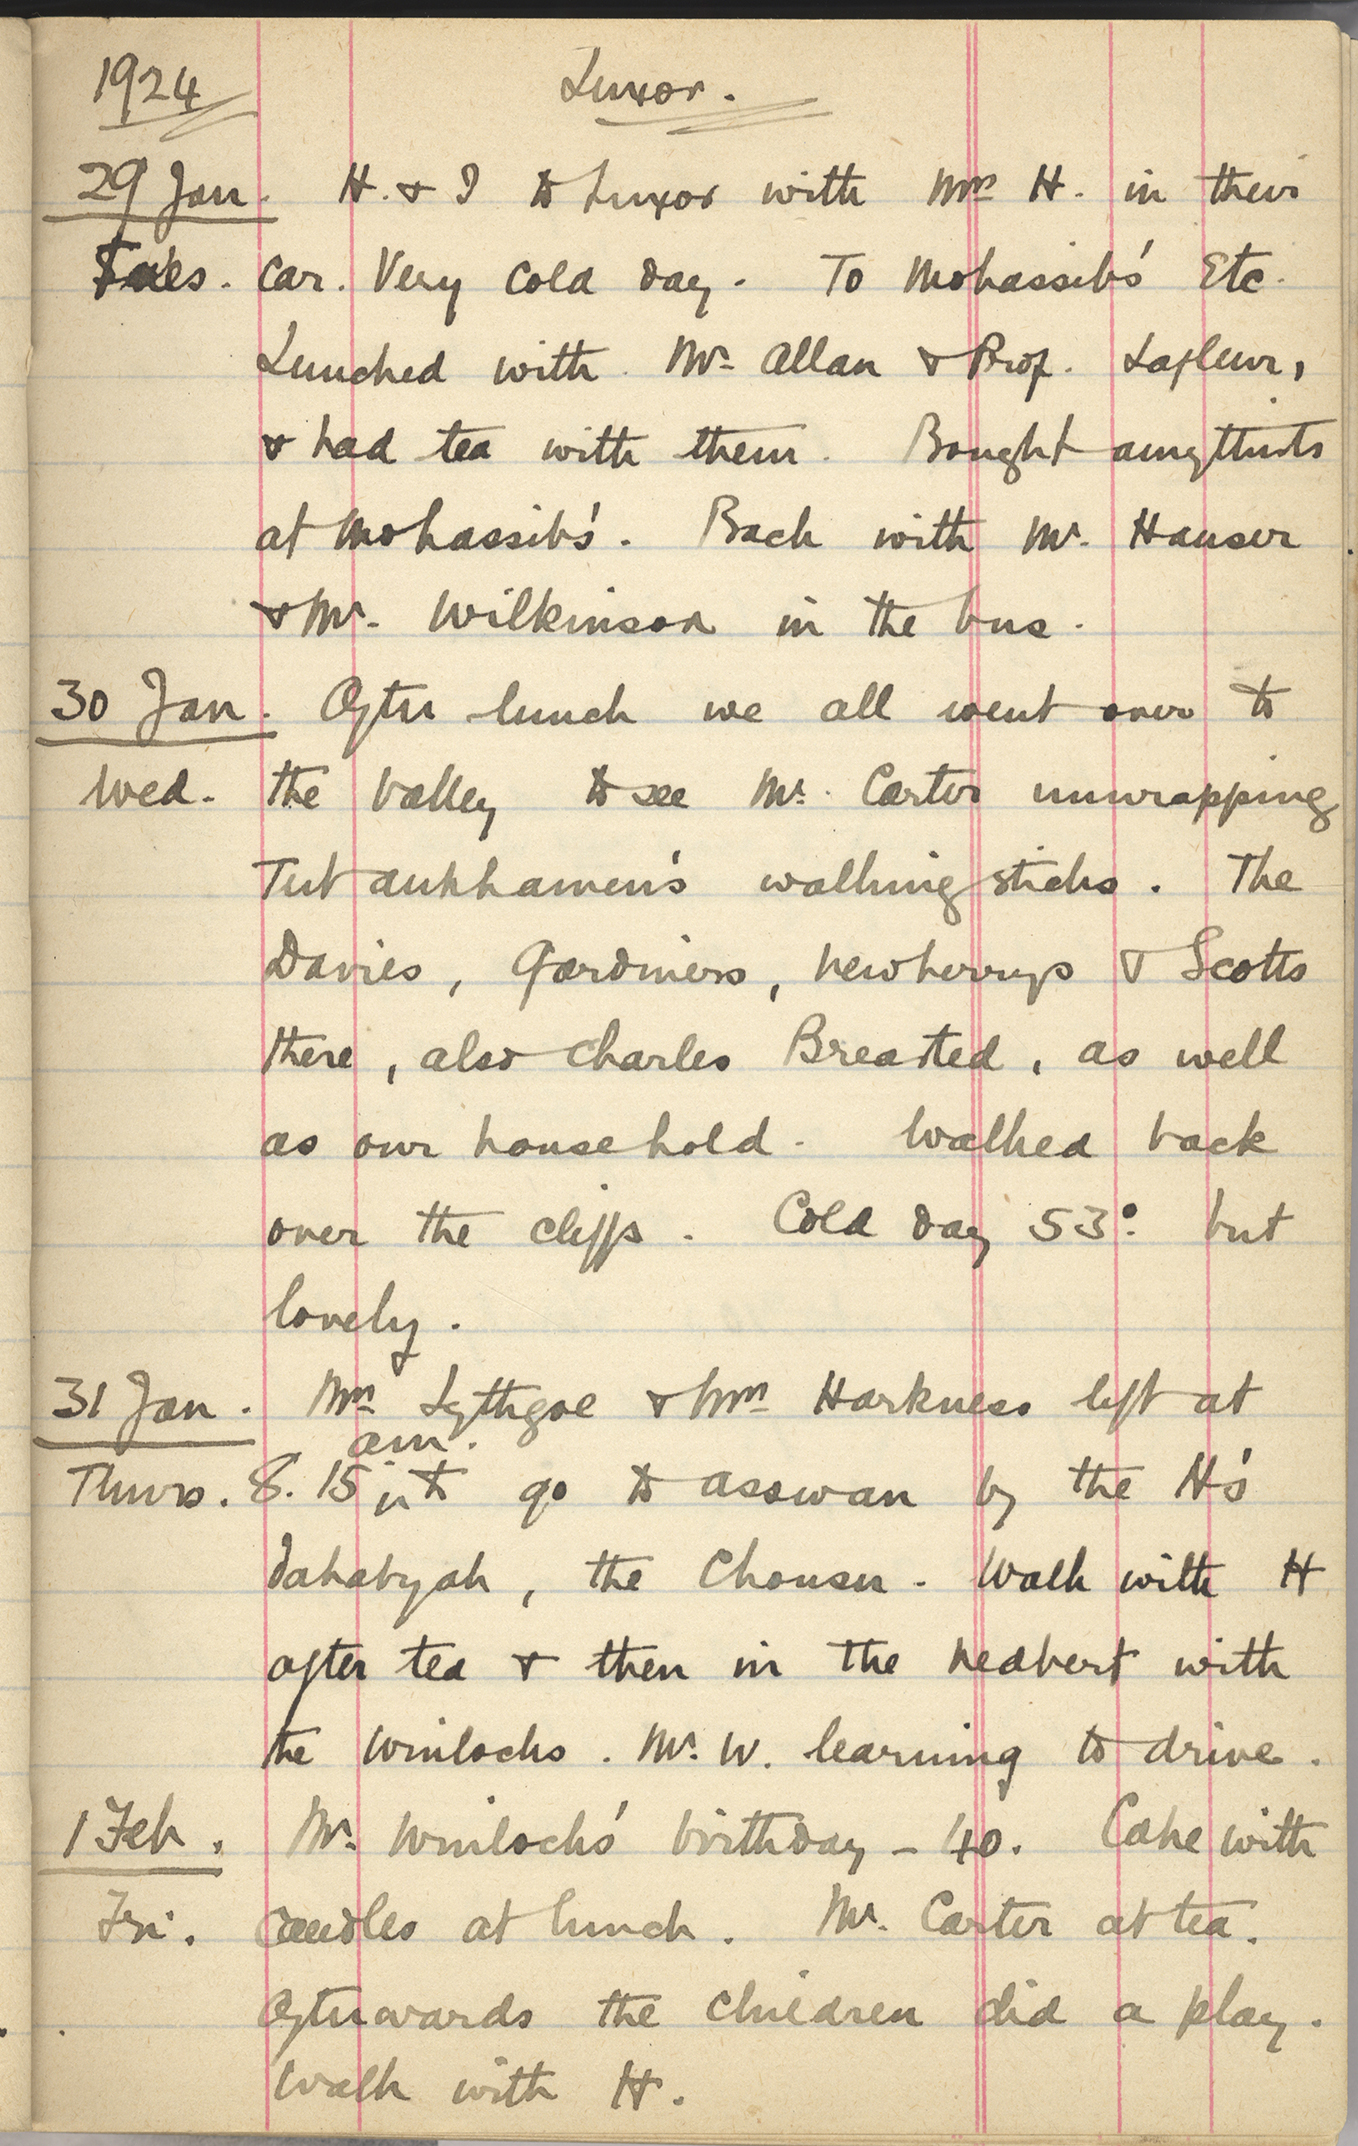 1924 Luxor.
29 Jan. H. & I to Luxor with Mrs H. in their
Tues. car. Very cold day. To Mohassib's Etc.
Lunched with Mr. Allan & Prof. Lafleur,
& had tea with them. Bought amythists
at Mohassib's. Back with Mr. Hauser
& Mr. Wilkinson in the bus.
30 Jan. After lunch we all went over to
Wed. the Valley to see Mr. Carter unwrapping
Tutankhamen's walking sticks. The
Davies, Gardiners, Newberrys & Scotts
there, also Charles Breasted, as well
as our household. Walked back
over the cliffs. Cold day 53° but
lovely.
31 Jan. Mrs Lythgoe & Mrs Harkness left at
am.
Thurs. 8.15 to go to Asswan by the H's
dahabyah, the Chonsu. Walk with H
after tea & then in the Hedbert with
the Winlocks. Mr. W. learning to drive.
1 Feb. Mr. Winlock's birthday – 40. Cake with
Fri. candles at lunch. Mr. Carter at tea.
Afterwards the children did a play.
Walk with H.